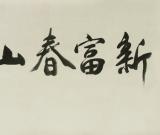 新富春山